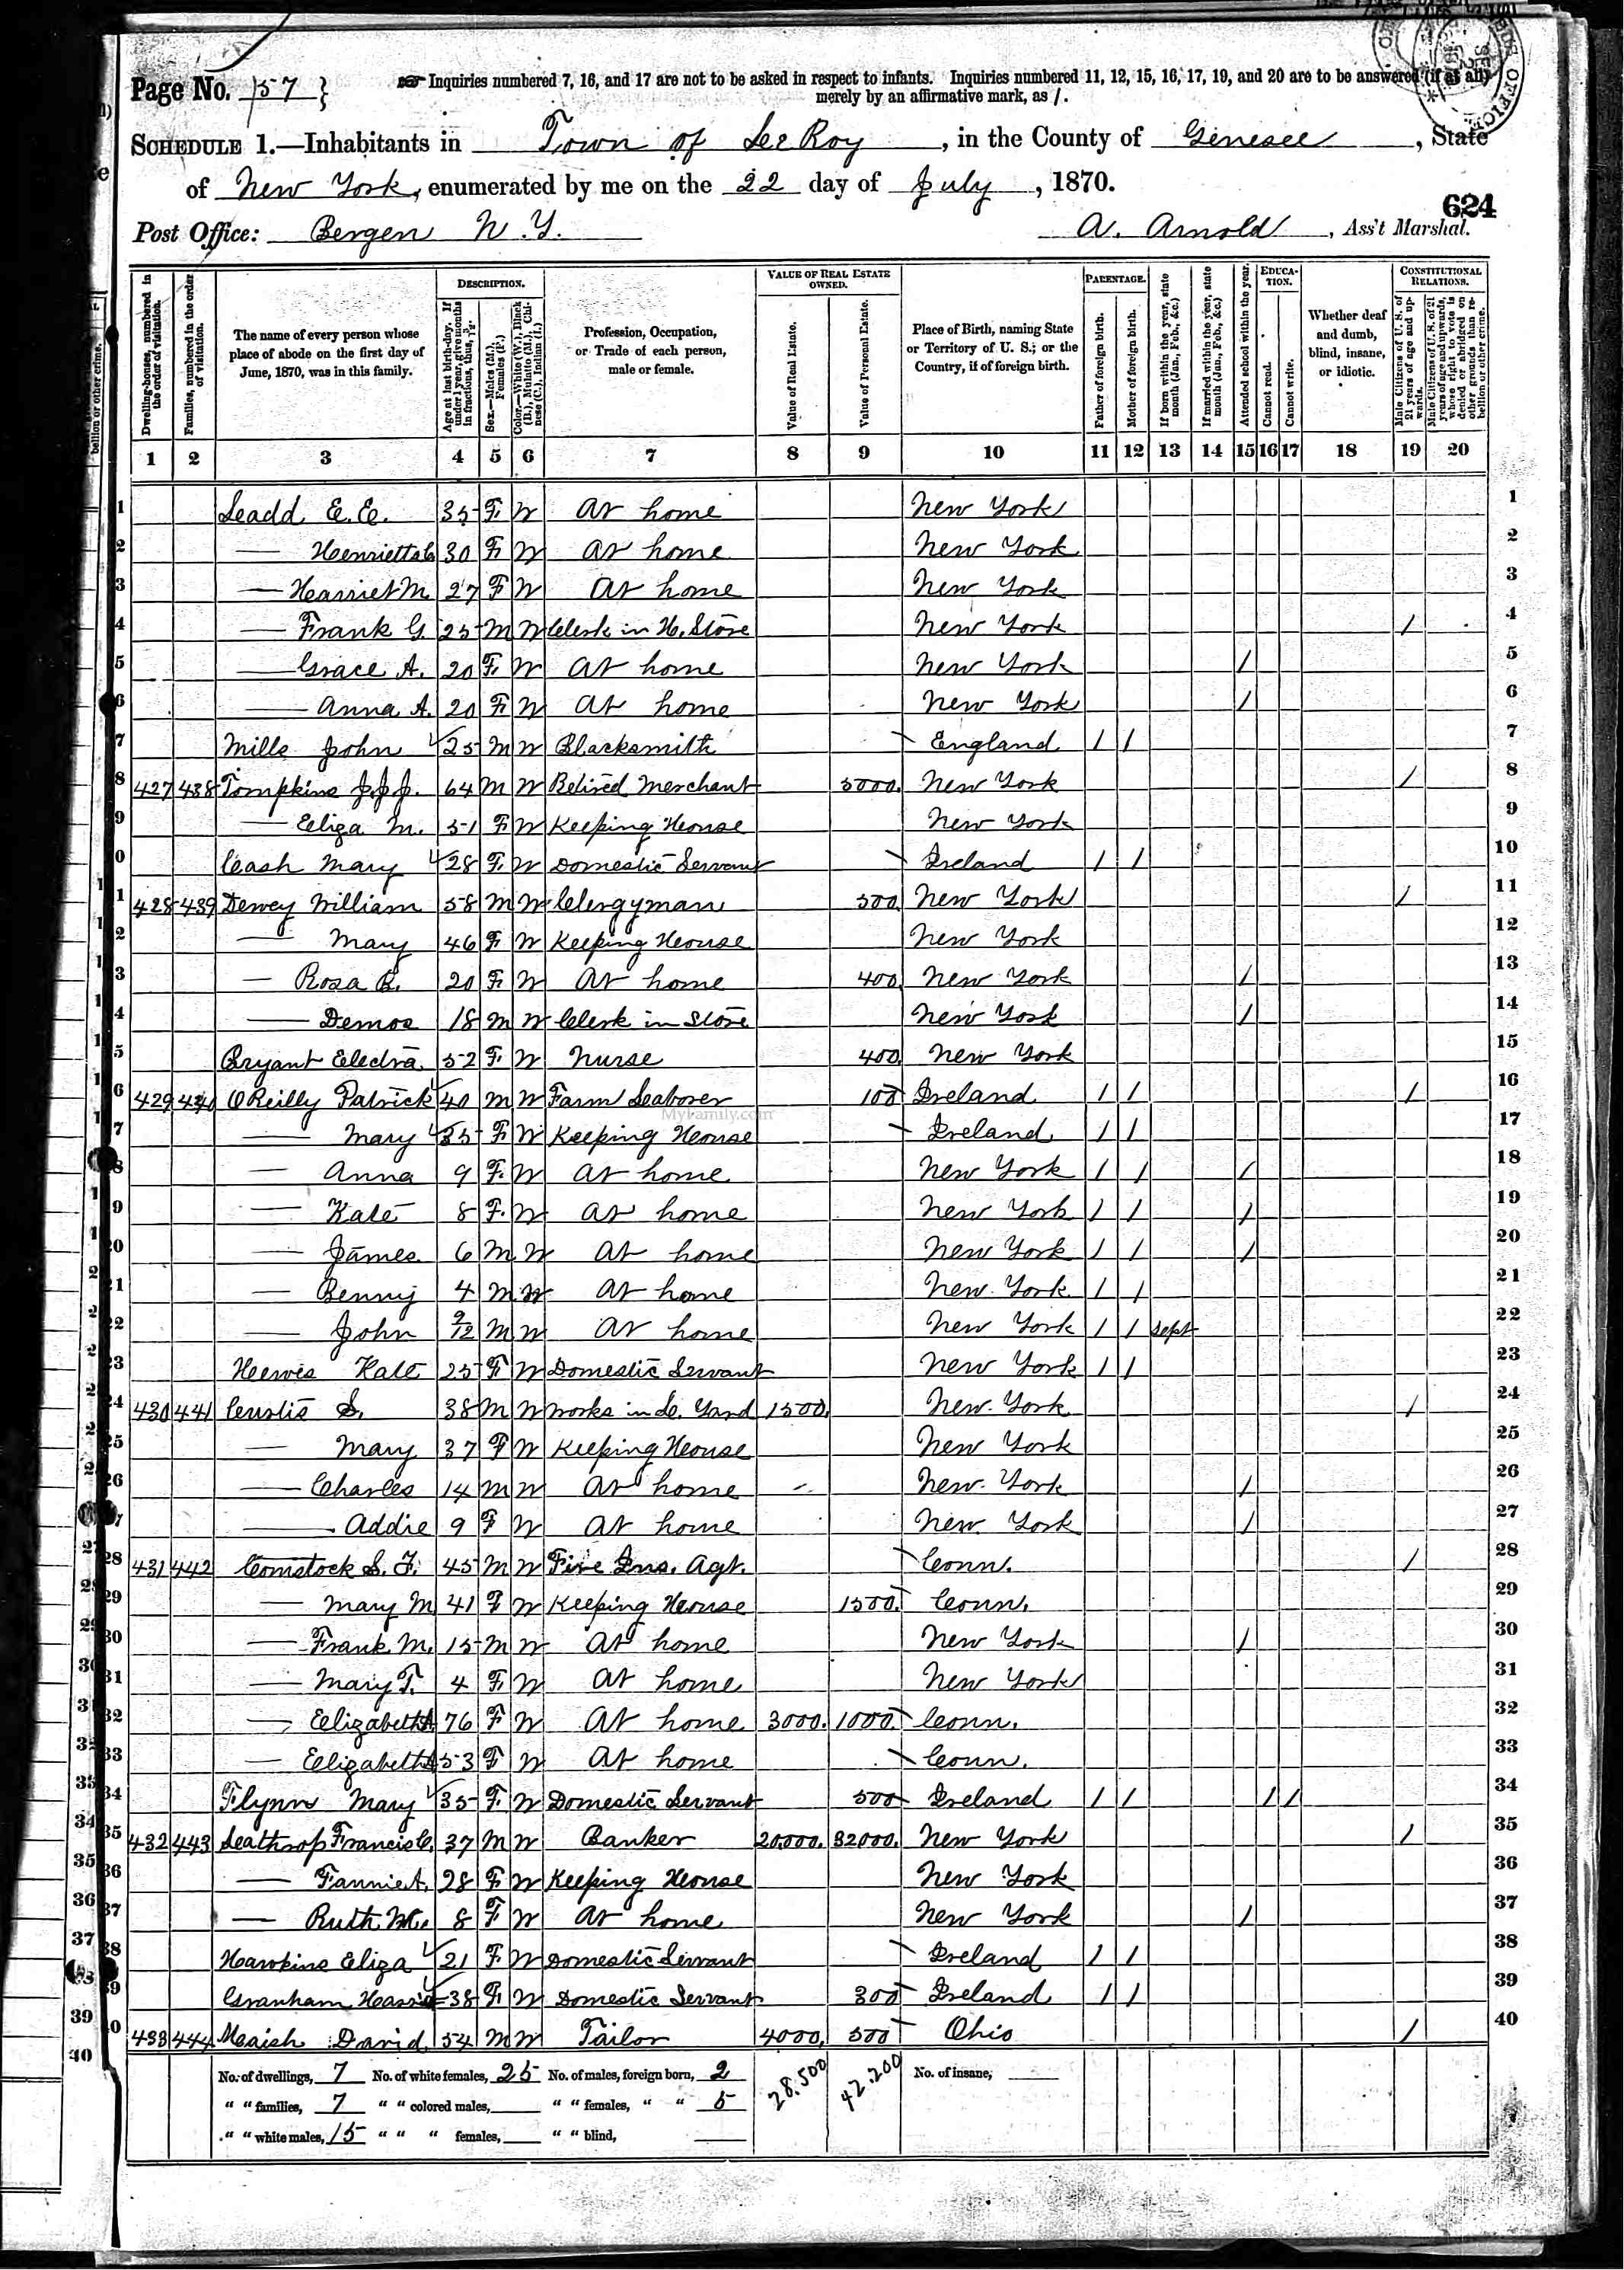 Page No. 157 }
Inquiries numbered 7, 16, and 17 are not to be asked in respect to infants. Inquiries numbered 11, 12, 15, 16, 17, 19, and 20 are to be answered (if at all)
merely by an affirmative mark, as /.
SCHEDULE 1.—Inhabitants in Town of Le Roy, in the County of Genesee, State
of New York, enumerated by me on the 22 day of July, 1870.
624
Post Office: Bergen N.Y. A. Arnold, Ass't Marshal.
Dwelling-houses, numbered in the order of visitation.
Families, numbered in the order of visitation.
The name of every person whose place of abode on the first day of June, 1870, was in this family.
DESCRIPTION.
Age at last birth-day. If under 1 year, give months in fractions, thus, 3/12.
Sex.—Males (M.), Females (F.)
Color.—White (W.), Black (B.), Mulatto (M.), Chinese (C.), Indian (I.)
Profession, Occupation, or Trade of each person, male or female.
VALUE OF REAL ESTATE OWNED.
Value of Real Estate.
Value of Personal Estate.
Place of Birth, naming State or Territory of U. S.; or the Country, if of foreign birth.
PARENTAGE.
Father of foreign birth.
Mother of foreign birth.
If born within the year, state month (Jan., Feb., &c.)
If married within the year, state month (Jan., Feb., &c.)
Attended school within the year.
EDUCATION.
Cannot read.
Cannot write.
Whether deaf and dumb, blind, insane, or idiotic.
CONSTITUTIONAL RELATIONS.
Male Citizens of U. S. of 21 years of age and upwards.
Male Citizens of U. S. of 21 years of age and upwards, whose right to vote is denied or abridged on other grounds than rebellion or other crime.
1 2 3 4 5 6 7 8 9 10 11 12 13 14 15 16 17 18 19 20
1 Ladd E. E. 35 F W At home New York 1
2 — Henrietta C 30 F W At home New York 2
3 — Harriet M. 27 F W At home New York 3
4 — Frank G. 25 M W Clerk in H. Store New York / 4
5 — Grace A. 20 F W At home New York / 5
6 — Anna A. 20 F W At home New York / 6
7 Mills John 25 M W Blacksmith England / / 7
8 427 438 Tompkins J.J.J. 64 M W Retired Merchant 5000. New York / 8
9 — Eliza M. 51 F W Keeping House New York 9
10 Cash Mary 28 F W Domestic Servant Ireland / / 10
11 428 439 Dewey William 58 M W Clergyman 500. New York / 11
12 — Mary 46 F W Keeping House New York 12
13 — Rosa B. 20 F W At home 400. New York / 13
14 — Demos 18 M W Clerk in Store New York / 14
15 Bryant Electra 52 F W Nurse 400. New York 15
16 429 440 OReilly Patrick 40 M W Farm Laborer 100 Ireland / / / 16
17 — Mary 35 F W Keeping House Ireland / / 17
18 — Anna 9 F W At home New York / / / 18
19 — Kate 8 F W At home New York / / / 19
20 — James 6 M W At home New York / / / 20
21 — Benny 4 M W At home New York / / 21
22 — John 9/12 M W At home New York / / Sept 22
23 Hewes Kate 25 F W Domestic Servant New York / / 23
24 430 441 Curtis S. 38 M W Works in L. Yard 1500. New York / 24
25 — Mary 37 F W Keeping House New York 25
26 — Charles 14 M W At home New York / 26
27 — Addie 9 F W At home New York / 27
28 431 442 Comstock S. F. 45 M W Fire Ins. Agt. Conn. / 28
29 — Mary M 41 F W Keeping House 1500. Conn. 29
30 — Frank M. 15 M W At home New York / 30
31 — Mary T. 4 F W At home New York 31
32 — Elizabeth 76 F W At home 3000. 1000. Conn. 32
33 — Elizabeth 53 F W At home Conn. 33
34 Flynn Mary 35 F W Domestic Servant 500 Ireland / / / / 34
35 432 443 Lathrop Francis C. 37 M W Banker 20.000. 32000. New York / 35
36 — Fannie A. 28 F W Keeping House New York 36
37 — Ruth Mc. 8 F W At home New York / 37
38 Hawkins Eliza 21 F W Domestic Servant Ireland / / 38
39 Granham 38 F W Domestic Servant 300 Ireland / / 39
40 433 444 Maish David 54 M W Tailor 4000. 500 Ohio / 40
No. of dwellings, 7 No. of white females, 25 No. of males, foreign born, 2 28.500 42.200 No. of insane,
" " families, 7 " " colored males, " " females, " " 5
" " white males, 15 " " " females, " " blind,
MyFamily.com